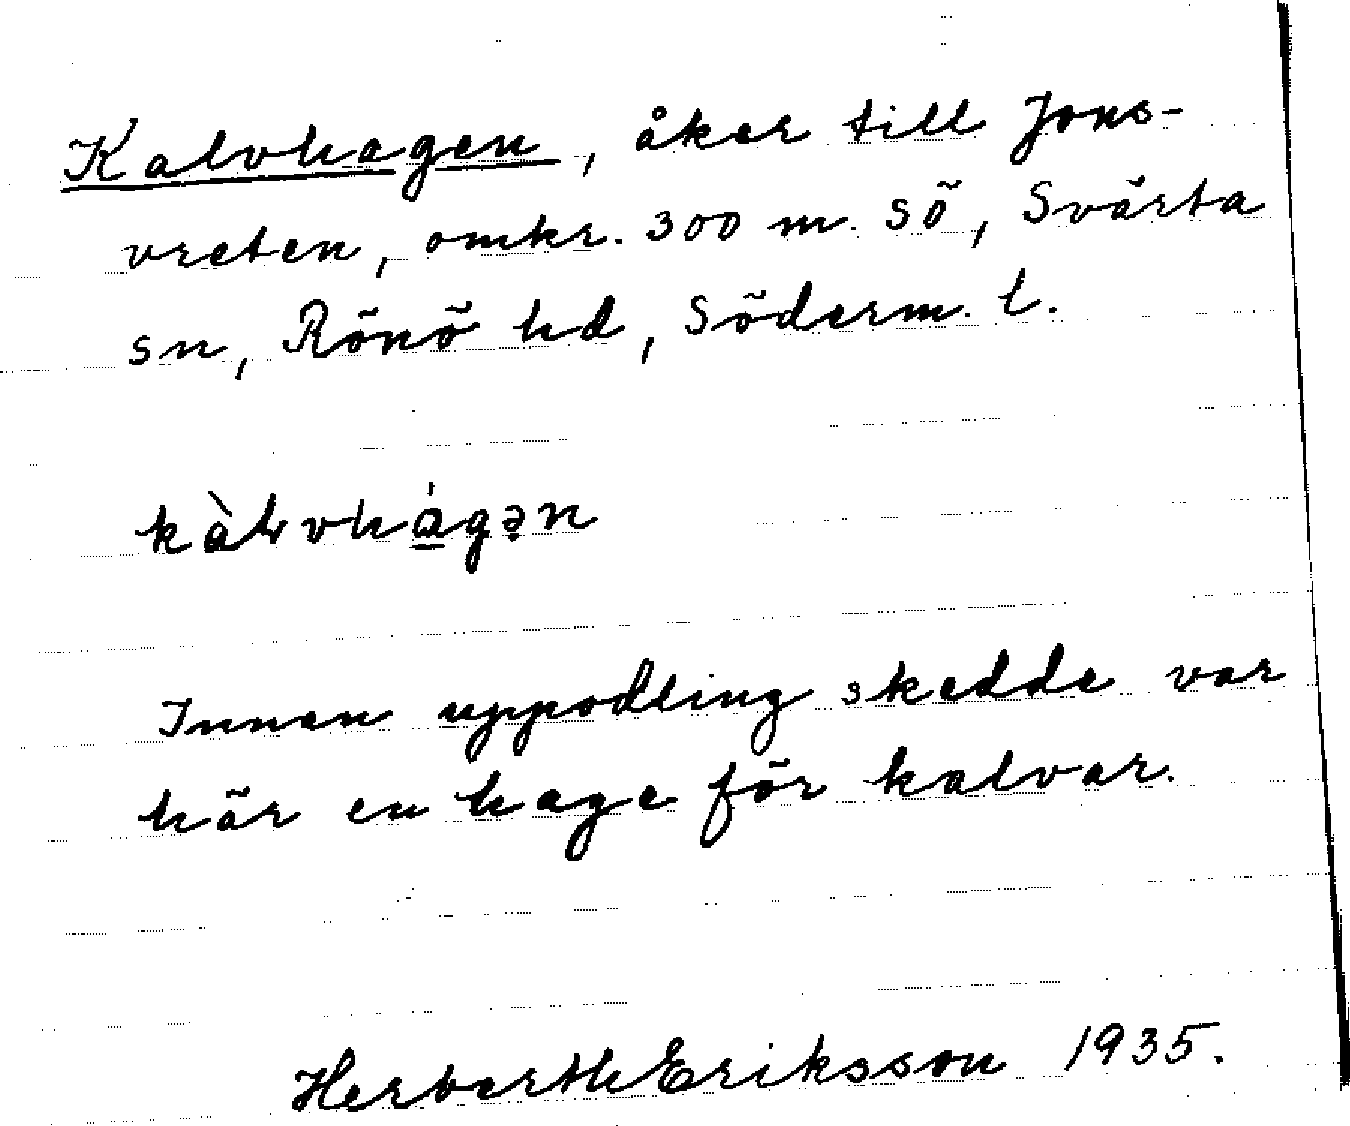 Kalvhagen, åker till Jons-
vreten, omkr. 300 m. sö, Svärta
sn, Rönö hd, Söderm. l.
kàlvhágən
Innan uppodling skedde var
här en hage för kalvar.
Herberth Eriksson 1935.